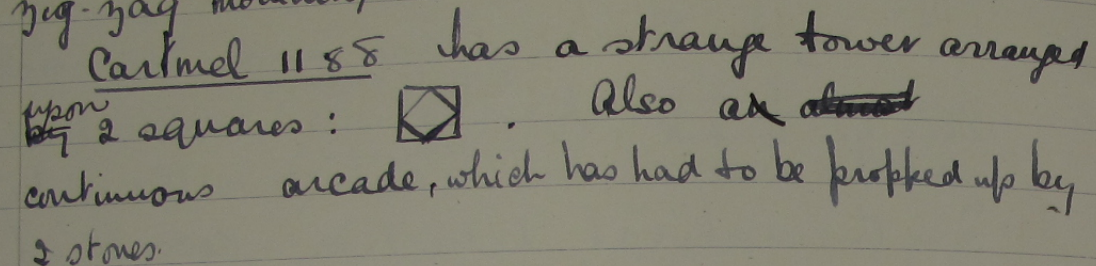 zig-zag
Cartmel 1188 has a strange tower arranged
upon
by 2 squares: . Also an almost
continuous arcade, which has had to be propped up by
2 stones.